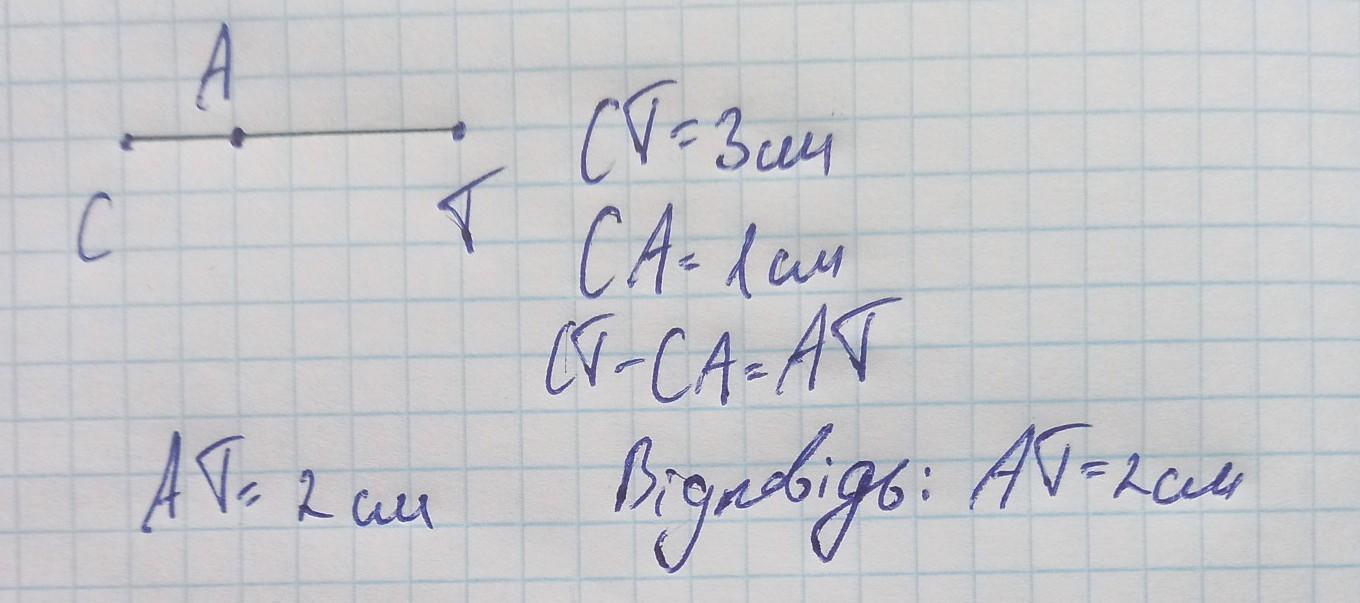 A
C
T
CT = 3 см
CA = 1 см
CT - CA = AT
AT = 2 см
Відповідь: AT = 2 см